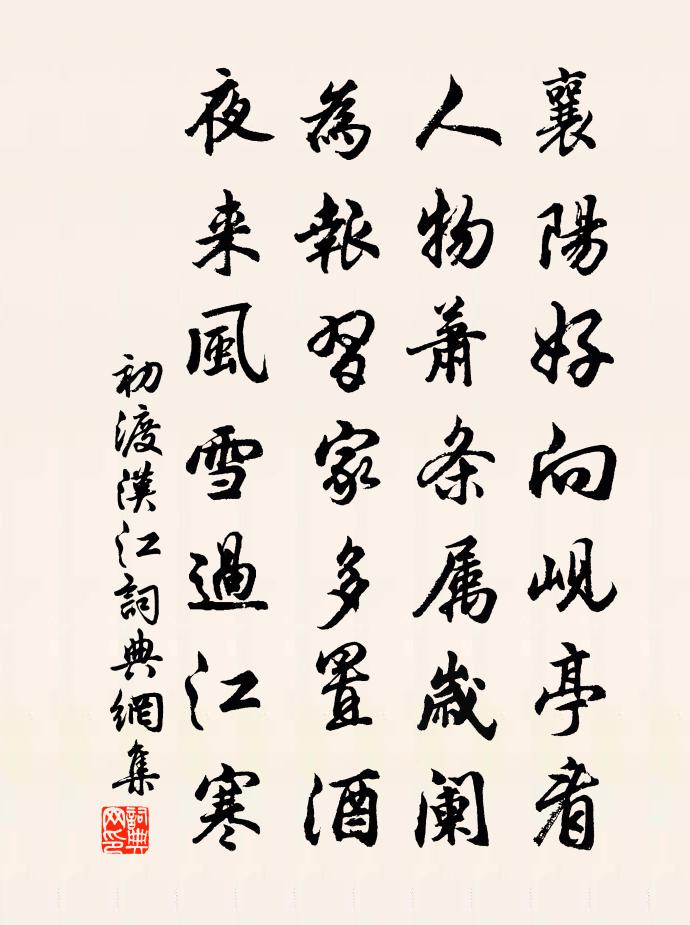 襄陽好向峴亭看
人物蕭条属歲阑
為報習家多置酒
夜来風雪過江寒
初渡漢江詞典網集
詞典网印